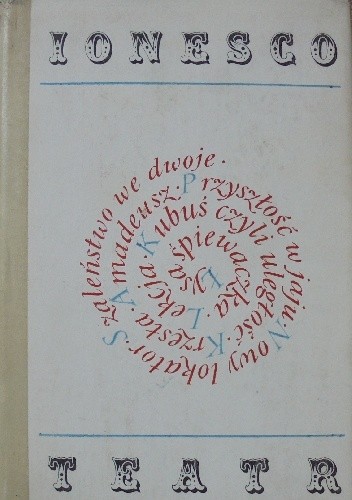 IONESCO
Łysa śpiewaczka · Lekcja · Kubuś czyli uległość · Krzesła · Amadeusz · Przyszłość w jaju · Nowy lokator · Szaleństwo we dwoje ·
TEATR